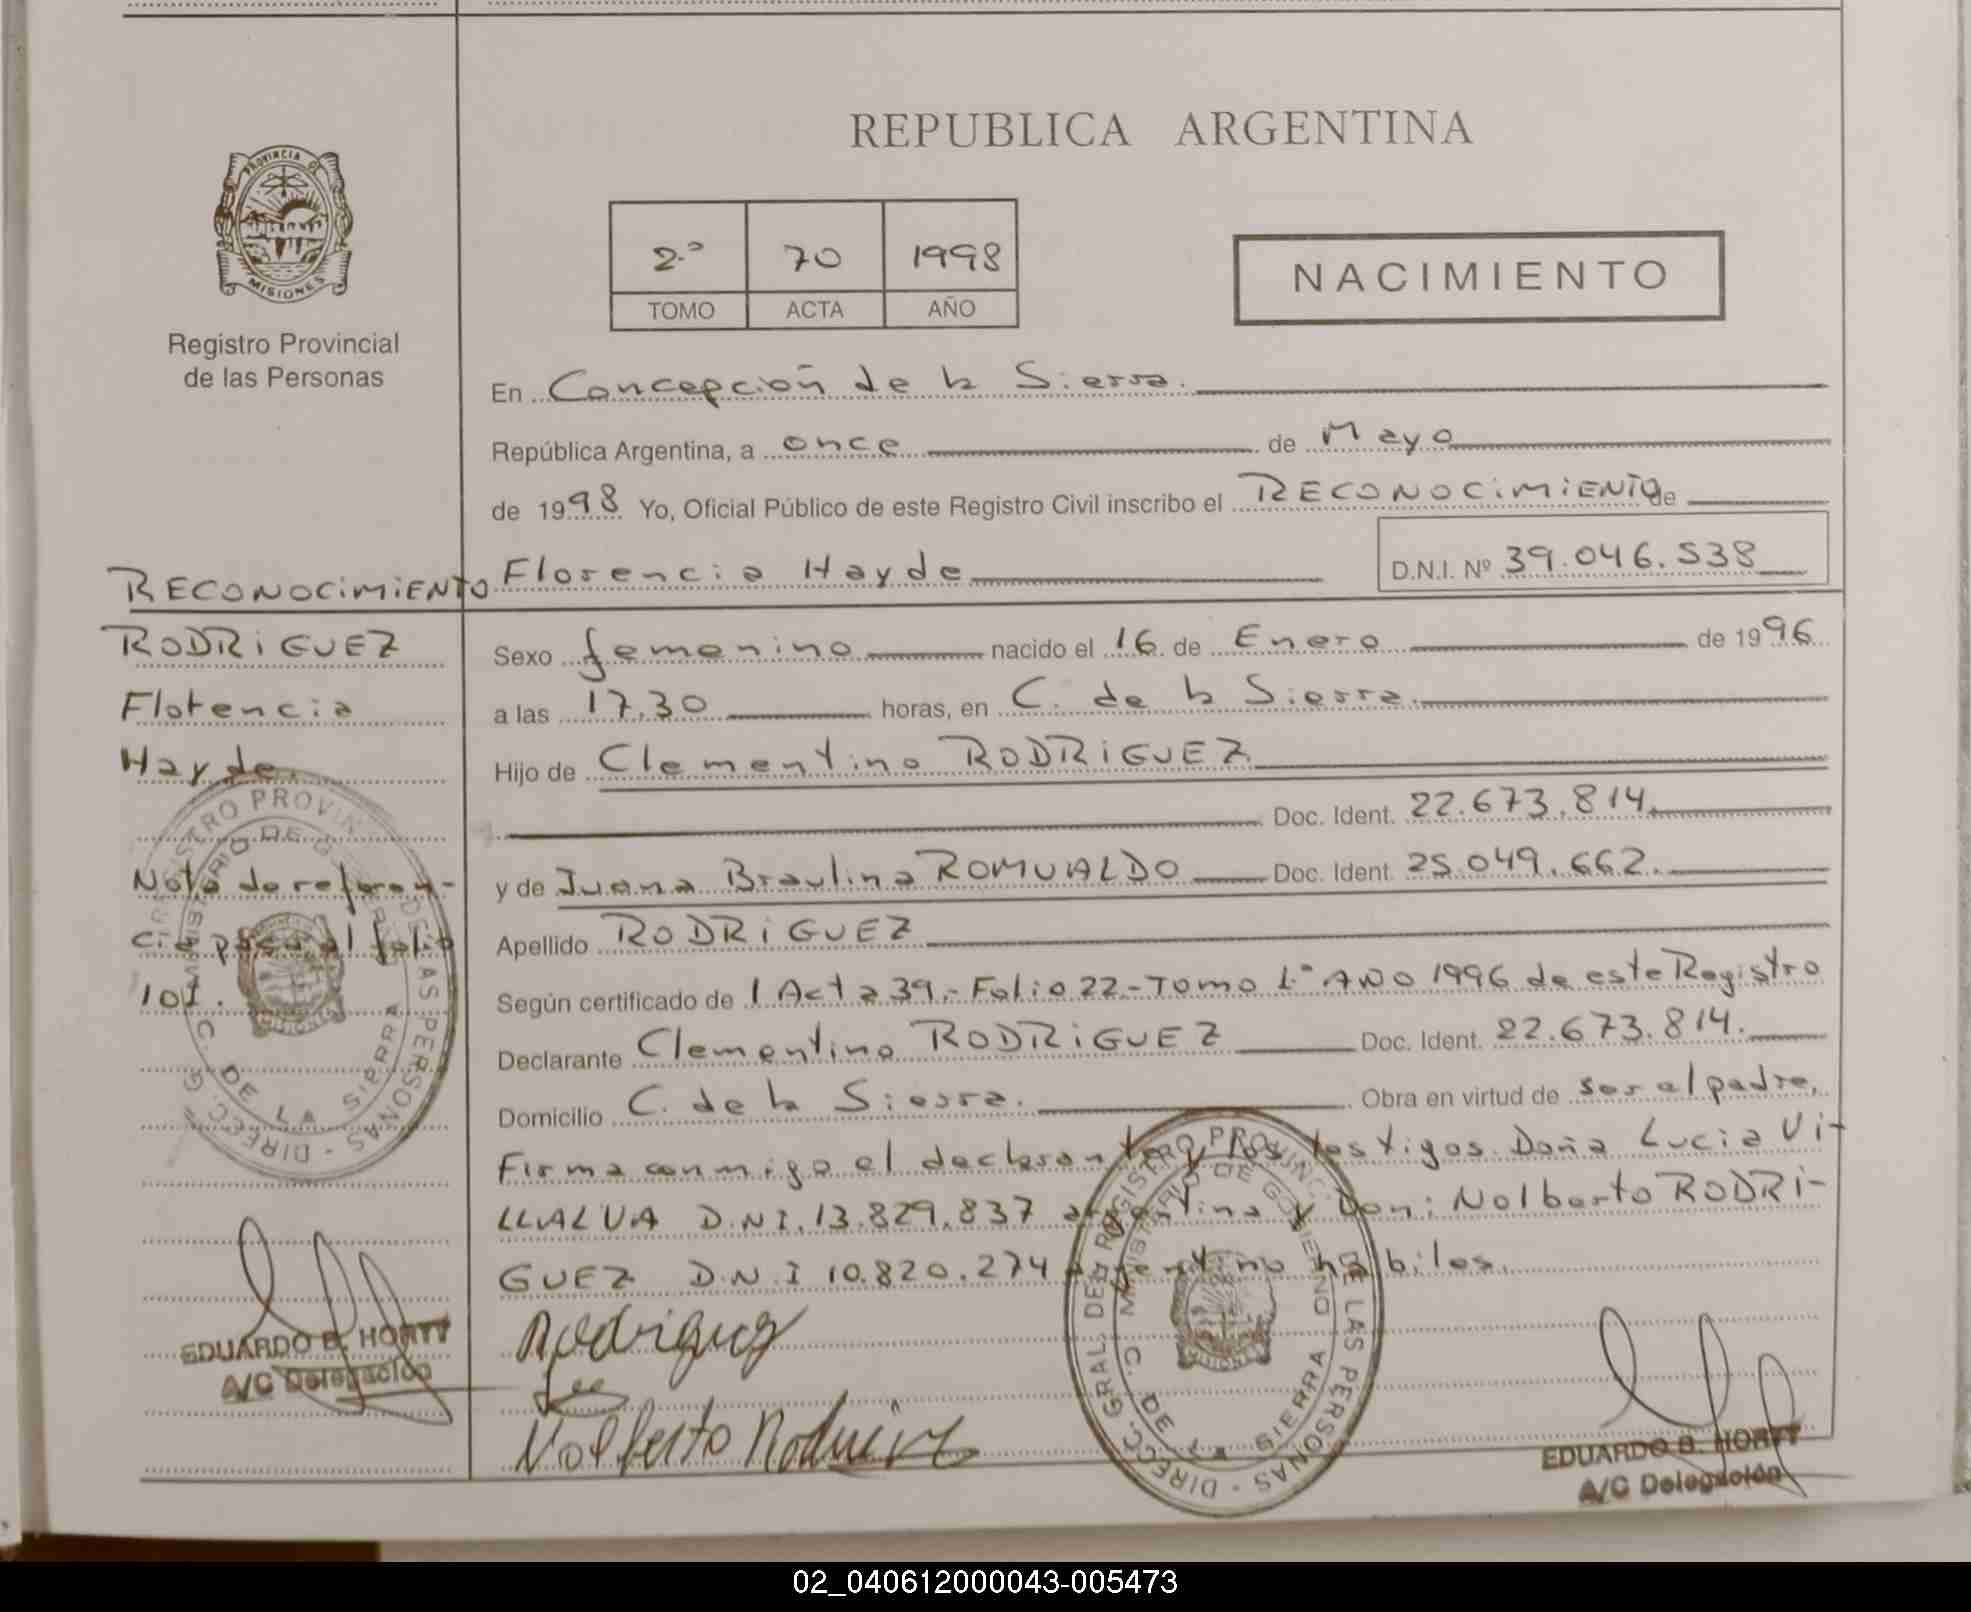 REPUBLICA ARGENTINA
PROVINCIA DE
MISIONES
Registro Provincial
de las Personas
2.º 70 1998
TOMO ACTA AÑO
NACIMIENTO
En Concepción de la Sierra.
República Argentina, a once de Mayo
de 1998 Yo, Oficial Público de este Registro Civil inscribo el RECONOCIMIENTO de
Florencia Hayde D.N.I. Nº 39.046.538
RECONOCIMIENTO
RODRIGUEZ
Florencia
Hayde.
Nota de referen-
cia pasa al folio
101.
Sexo femenino nacido el 16 de Enero de 1996
a las 17.30 horas, en C. de la Sierra.
Hijo de Clementino RODRIGUEZ
Doc. Ident. 22.673.814.
y de Juana Braulina ROMUALDO Doc. Ident. 25.049.662.
Apellido RODRIGUEZ
Según certificado de 1 Acta 39.- Folio 22.- Tomo 1.º AÑO 1996 de este Registro
Declarante Clementino RODRIGUEZ Doc. Ident. 22.673.814.
Domicilio C. de la Sierra. Obra en virtud de ser el padre.
Firma conmigo el declarante y los testigos Doña Lucia Vi-
LLALVA D.N.I. 13.829.837 argentina y Don: Nolberto RODRI-
GUEZ D.N.I 10.820.274 argentino hábiles.
Rodriguez
Nolberto Rodriguez
DIRECC. GRAL. DEL REGISTRO PROVINC. DE LAS PERSONAS
MINISTERIO DE GOBIERNO
C. DE LA SIERRA
MISIONES
DIRECC. G REGISTRO PROVIN DE LAS PERSONAS
MINISTERIO DE G
C. DE LA SIERRA
EDUARDO B. HORTT
A/C Delegación
EDUARDO B. HORTT
A/C Delegación
02_040612000043-005473